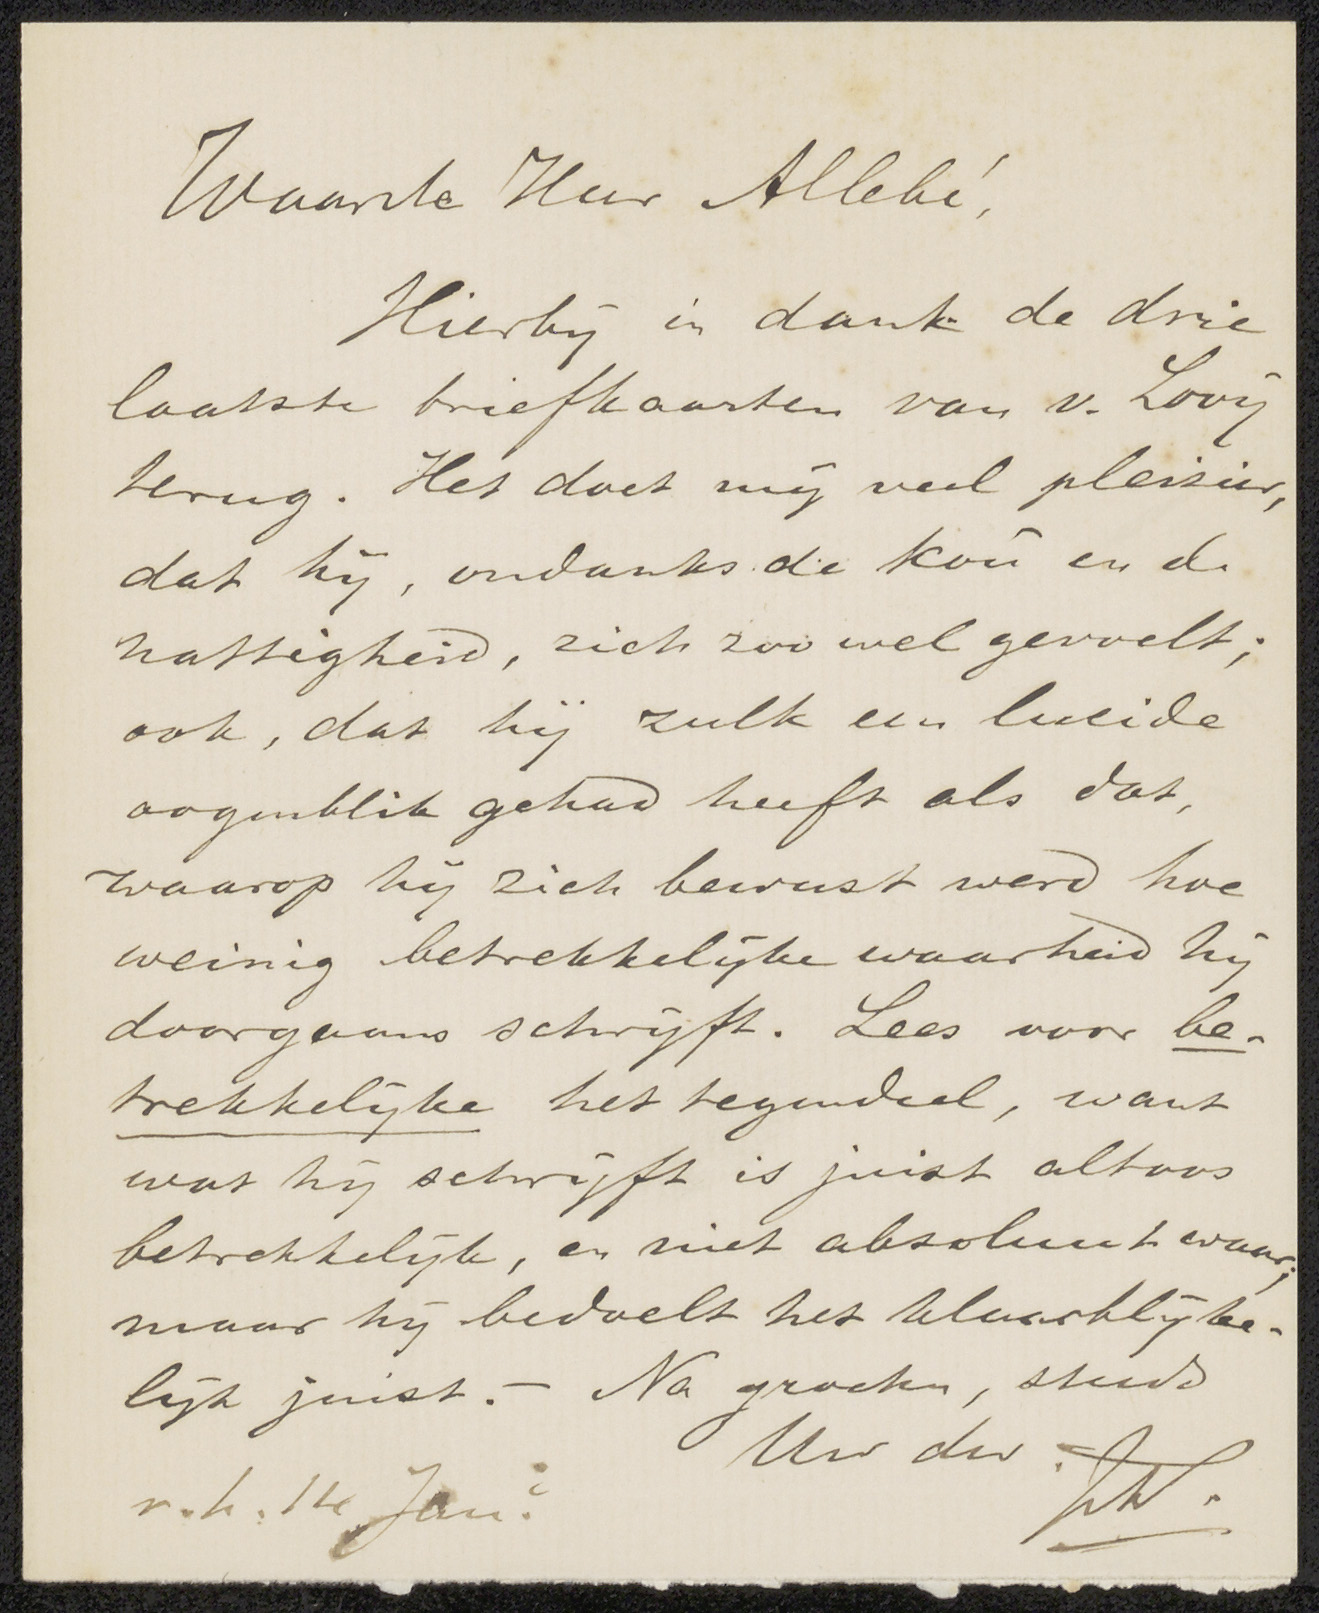 Waarde Heer Allebé,
Hierbij in dank de drie
laatste briefkaarten van v. Looij
terug. Het doet mij veel pleizier,
dat hij, ondanks de koû en de
nattigheid, zich zoo wel gevoelt;
ook, dat hij zulk een lucide
oogenblik gehad heeft als dat,
waarop hij zich bewust werd hoe
weinig betrekkelijke waarheid hij
doorgaans schrijft. Lees voor be-
trekkelijke het tegendeel, want
wat hij schrijft is juist altoos
betrekkelijk, en niet absoluut waar;
maar hij bedoelt het klaarblijke-
lijk juist. — Na groeten, steeds
Uw dw.
v.h. 14 Jan: